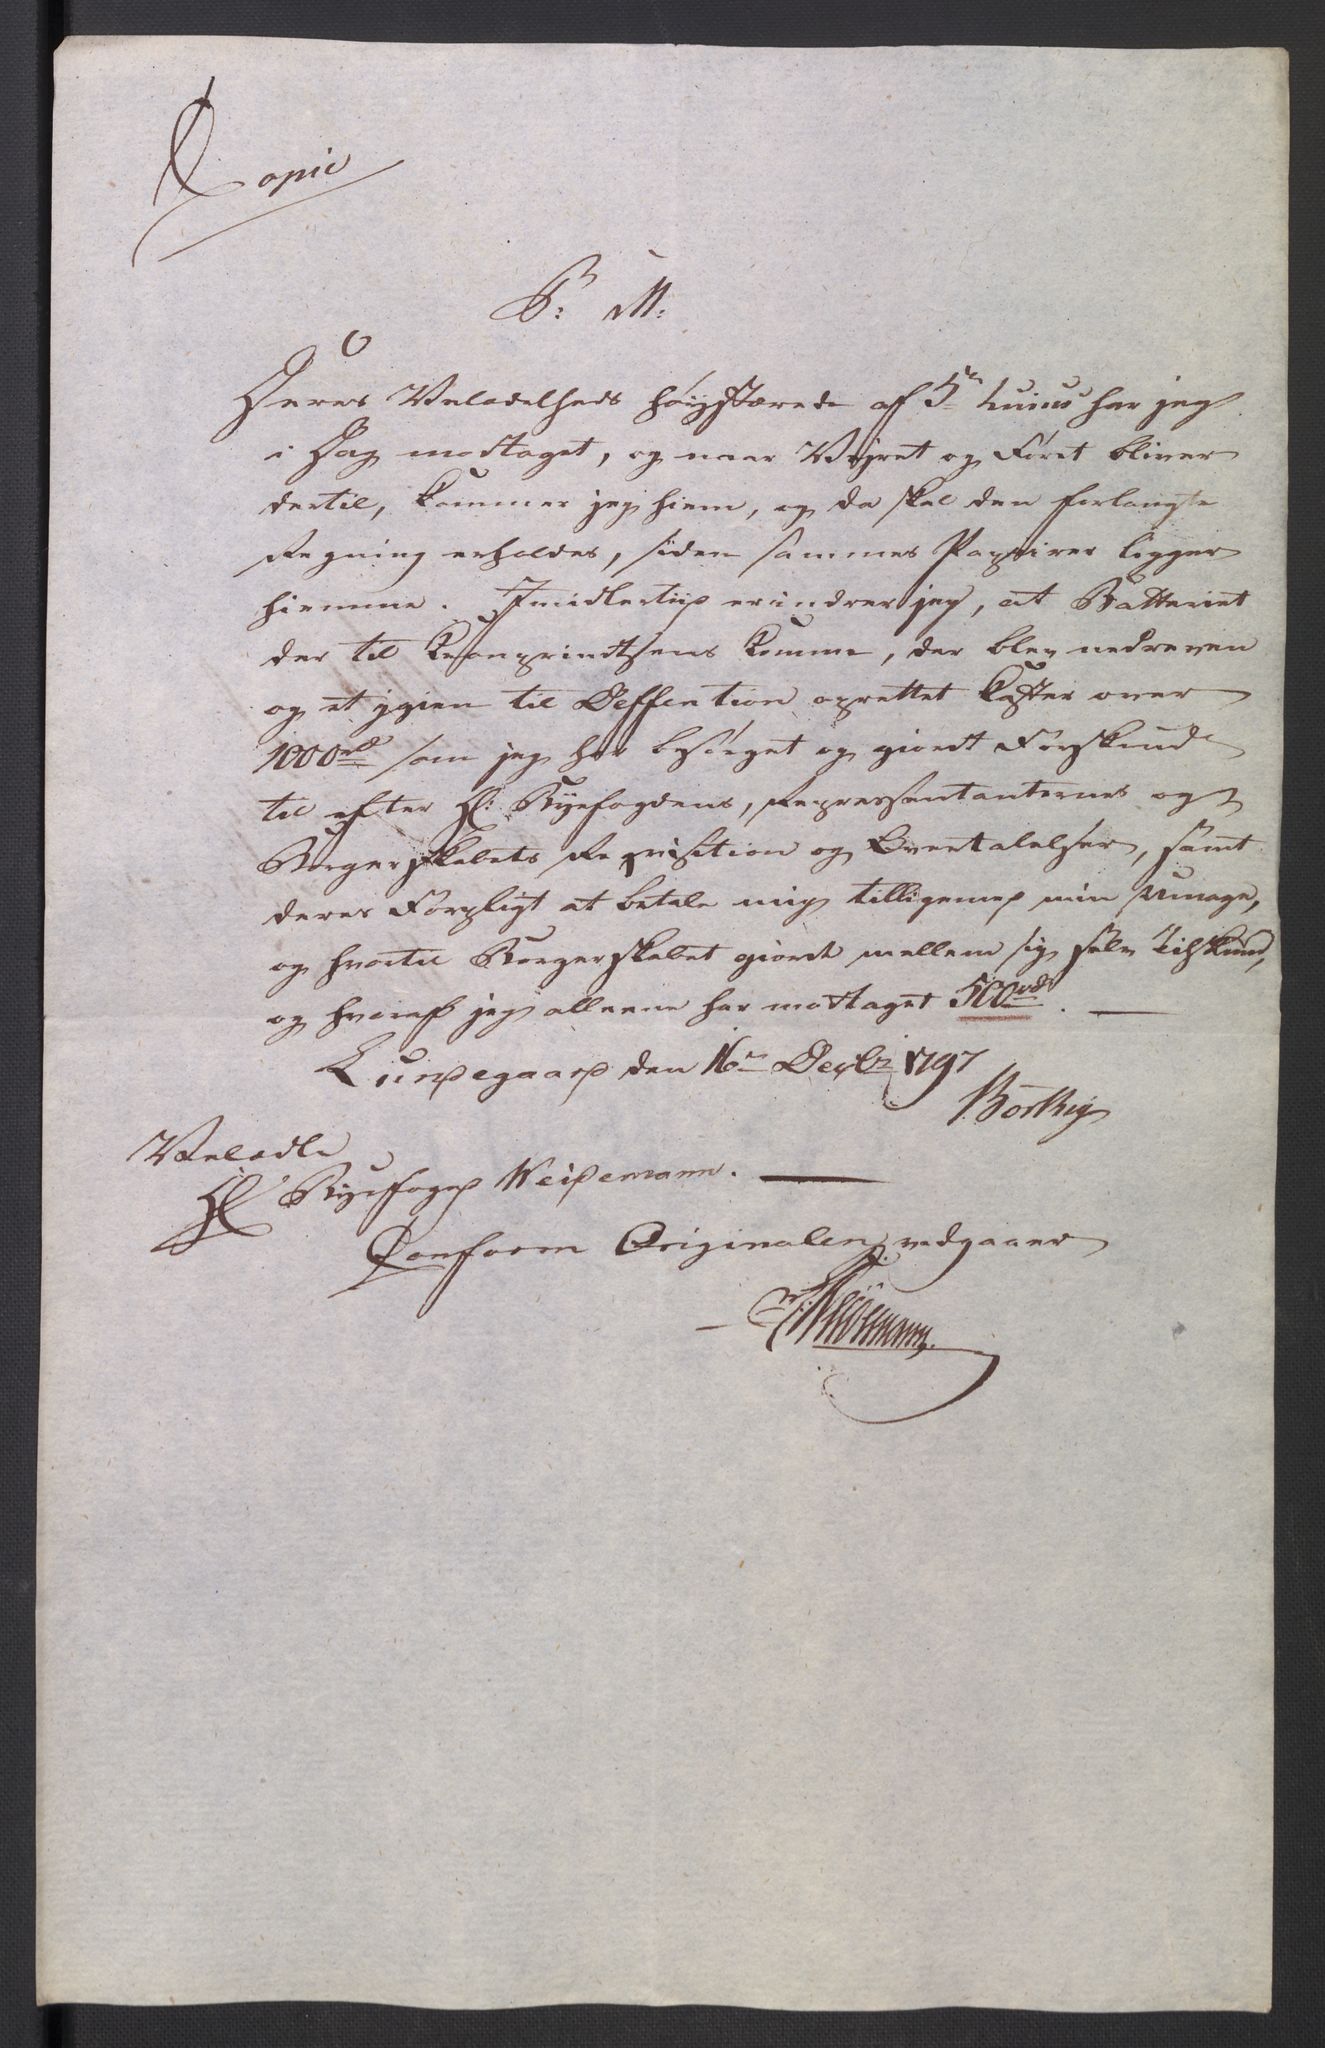 Copie
P: M:
Deres Velædelheds høystærede af 5te huius har jeg
i Dag modtaget, og naar Vejret og Føret bliver
dertil, kommer jeg hiem, og da skal den forlangte
Regning erholdes, siden sammes Papirer ligger
hiemme. Imidlertiid erindrer jeg, at Batteriet
der til Kronprindtsens komme, der blev nedreven
og et igien til Deffention oprettet koster over
1000rd som jeg har besørget og giordt Forskud
til efter Hr: Byefogdens, Repressentanternes og
Borgerskabets Reqvisition og Overtalelser, samt
deres Forpligt at betale mig tilligemed min Umage,
og hvortil Borgerskabet giorde mellem sig selv Tilskud,
og hvoraf jeg alleene har modtaget 500rd.
Lundegaard den 16de Decbr 1797
Börthig
Velædle
Hr Byefoged Weidemann.
Conform Originalen vedgaaer